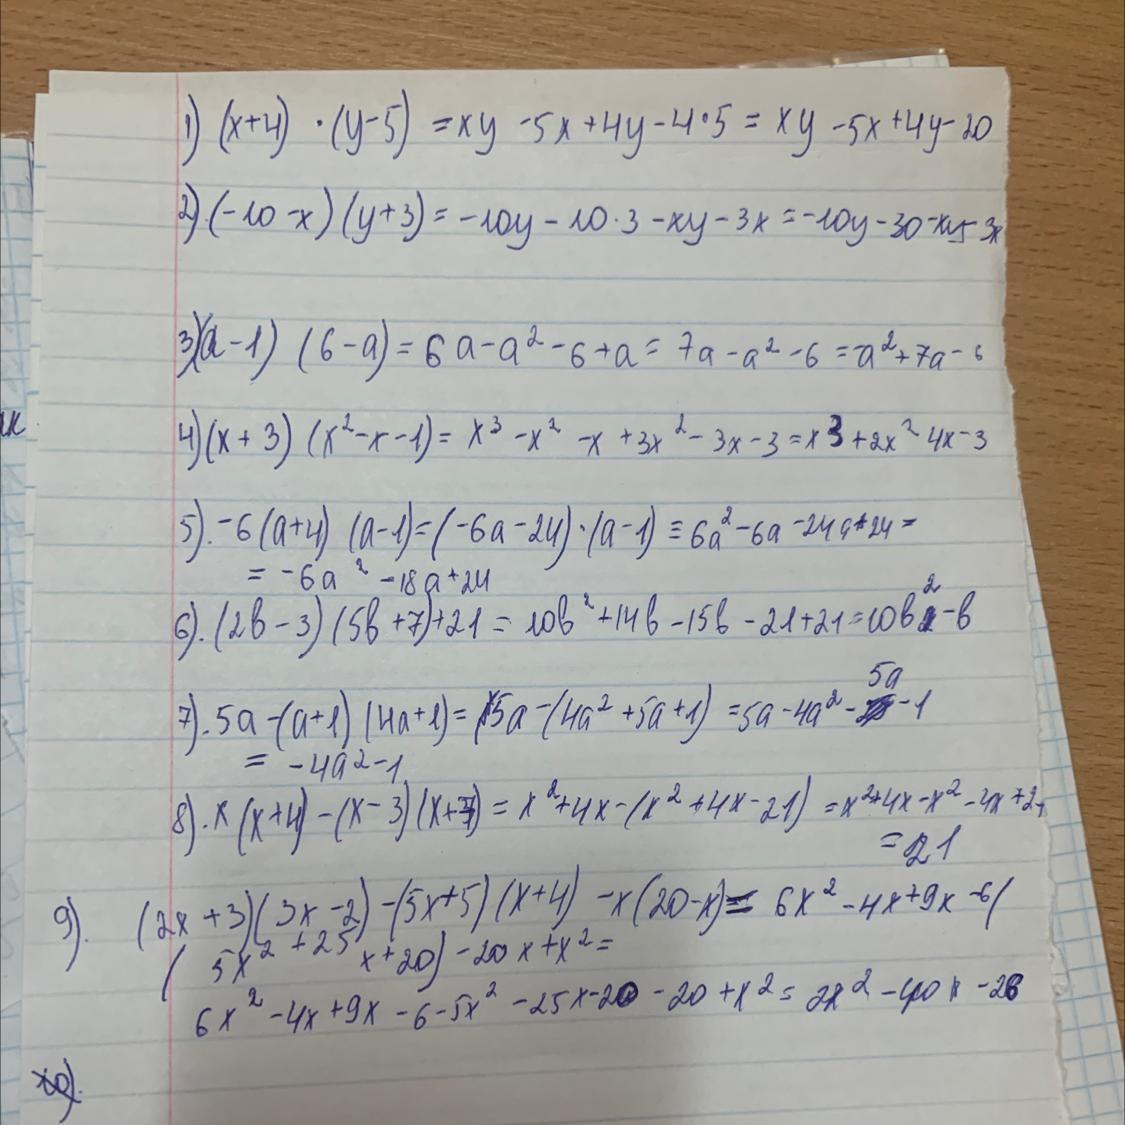 1) (x+4) · (y-5) = xy -5x+4y-4·5 = xy -5x+4y-20
2).(-10-x) (y+3) = -10y - 10·3 -xy - 3x = -10y - 30 -xy - 3x
3)(a-1) (6-a) = 6a-a² -6+a = 7a-a² -6 = -a²+7a-6
4)(x+3) (x²-x-1) = x³ -x² -x +3x² - 3x - 3 = x3 +2x² 4x-3
5). -6(a+4) (a-1) = (-6a-24)·(a-1) = 6a² -6a -24a+24 =
= -6a² -18a+24
6). (2b-3) (5b+7)+21 = 10b² +14b -15b - 21+21 = 10b² -b
7). 5a-(a+1) (4a+1) = 5a-(4a² +5a+1) = 5a-4a² - 5a -1
= -4a²-1
8). x (x+4) -(x-3) (x+7) = x²+4x-(x²+4x-21) = x²+4x-x² -4x+21
= 21
9). (2x+3)(3x-2) -(5x+5) (x+4) -x(20-x) = 6x² -4x+9x -6(
( 5x² +25 x+20) -20x+x² =
6x² -4x+9x -6-5x² -25x-20 -20 +x² = 2x² -40x -26